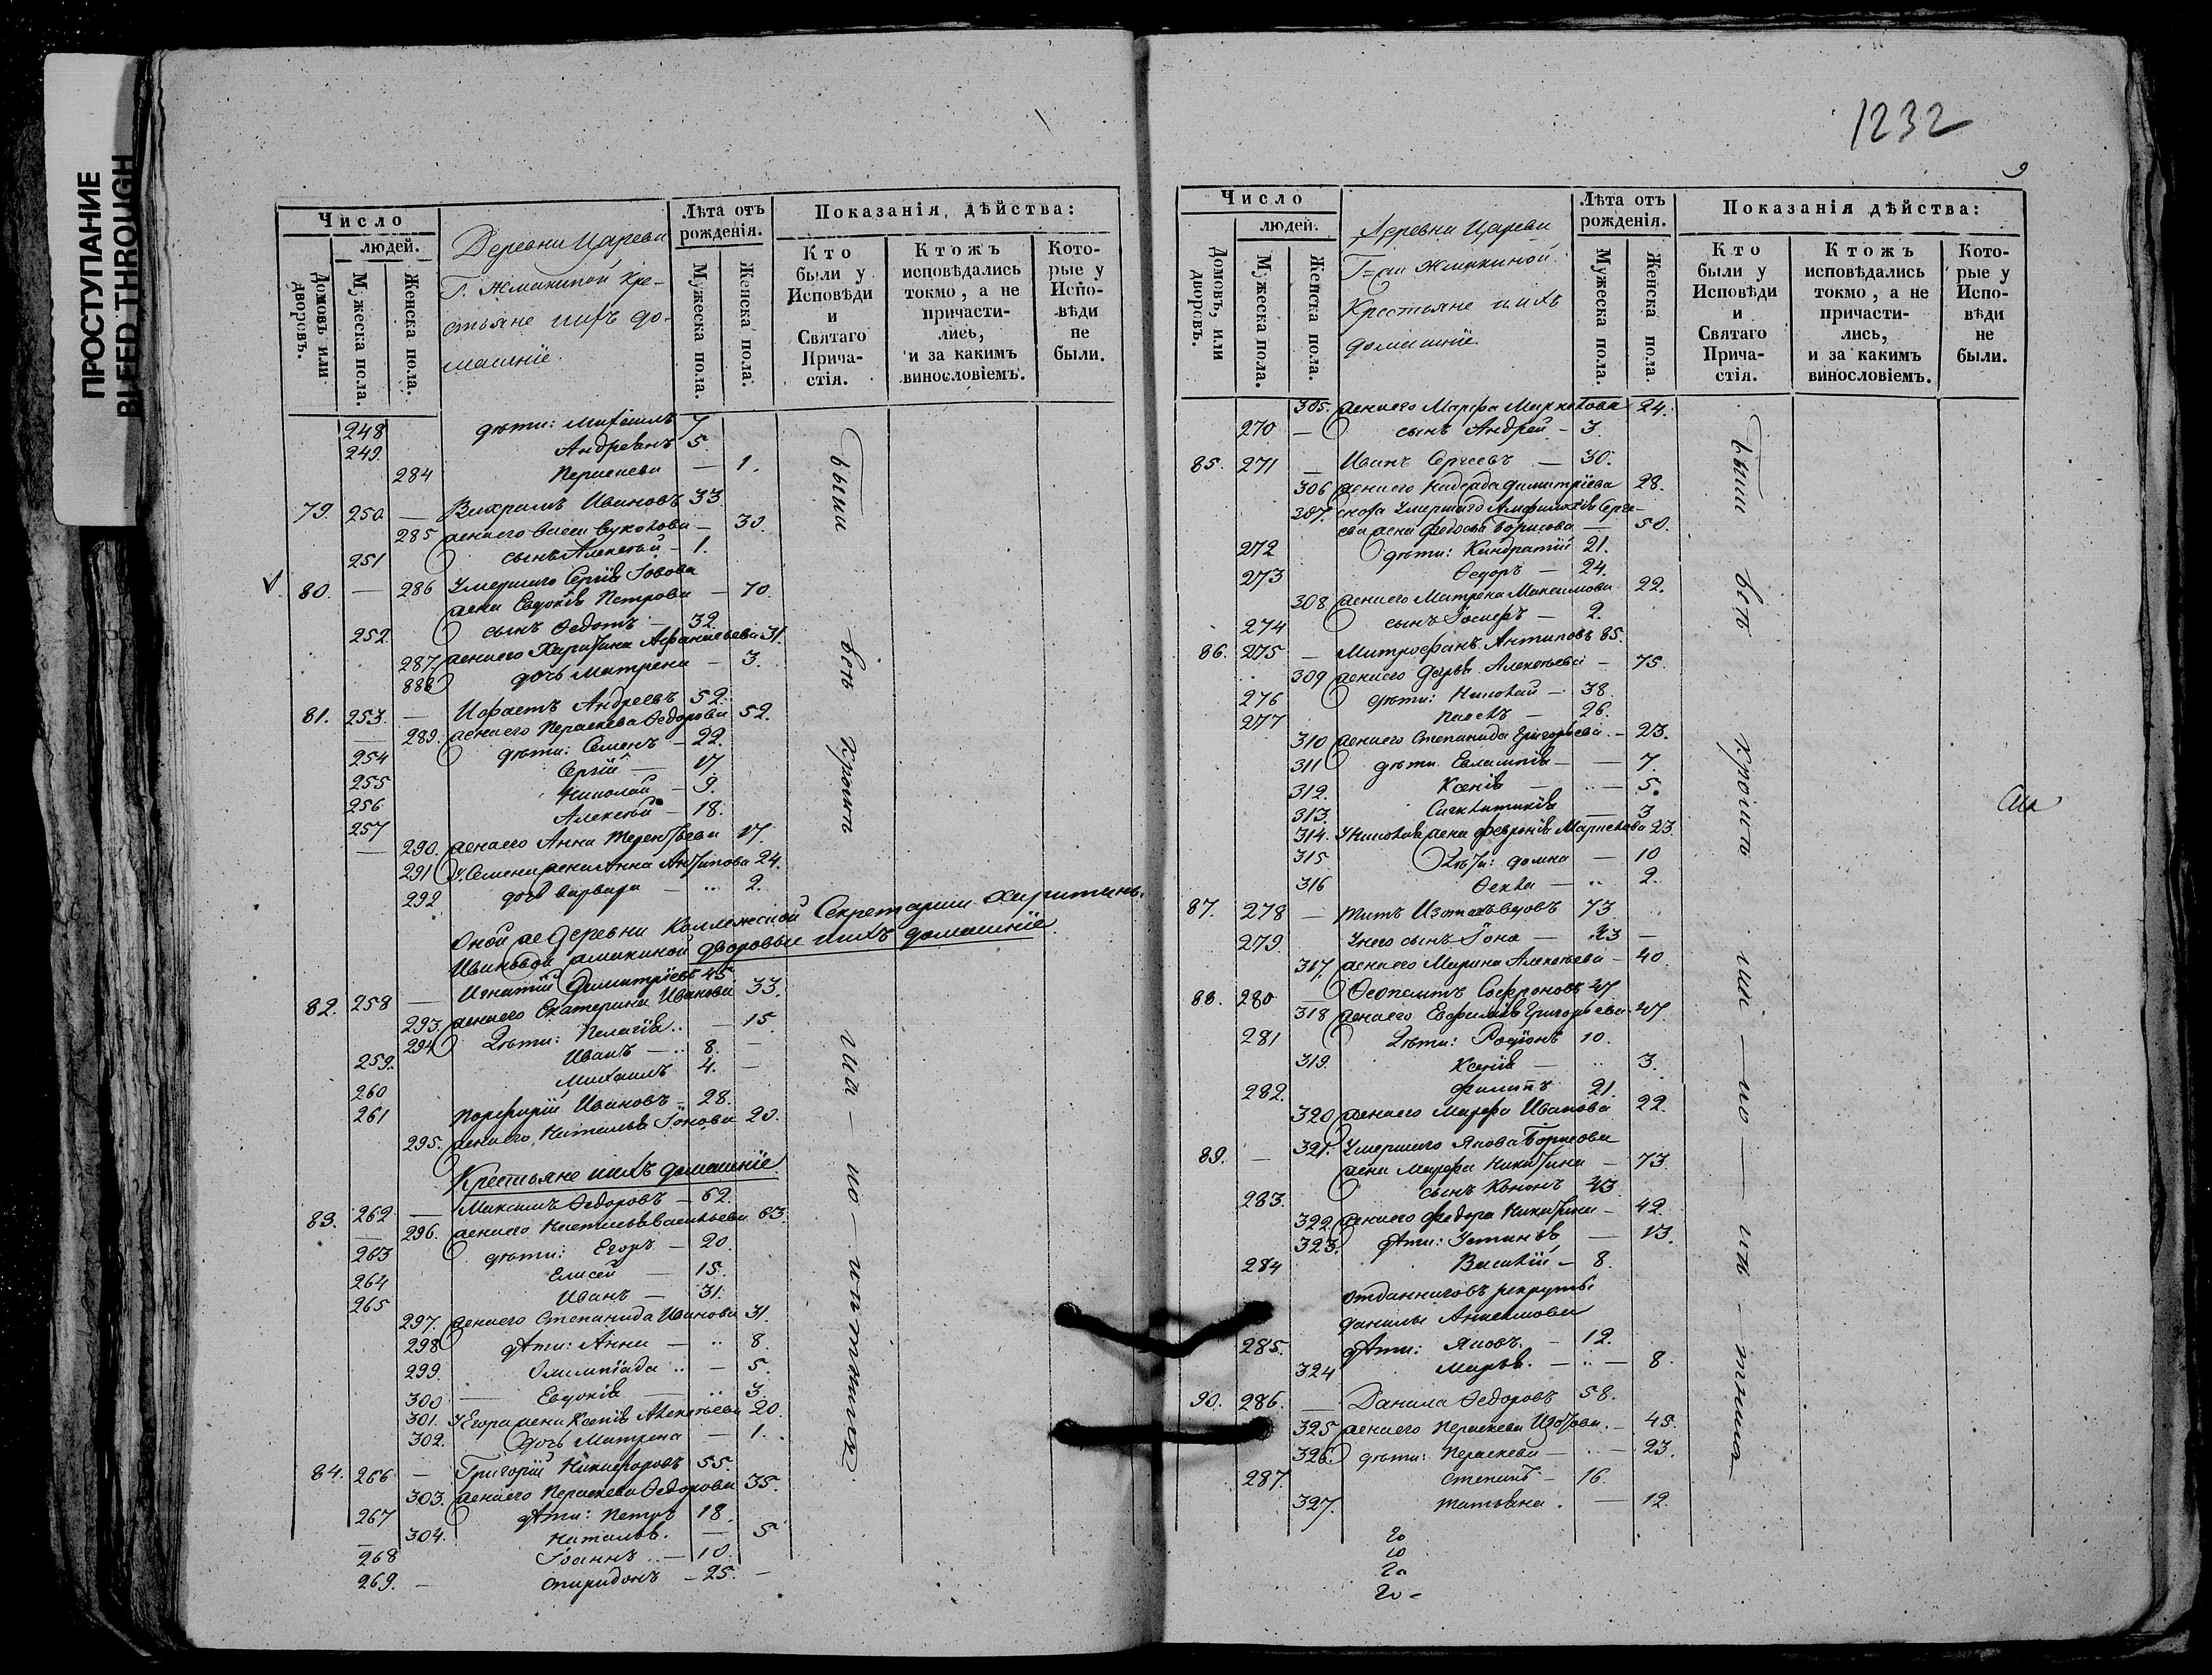 ПРОСТУПАНИЕ
BLEED THROUGH
Число
людей.
Домовъ или дворовъ.
Мужеска пола.
Женска пола.
Деревни Царевы
Г. Жмакиной Кре-
стьяне и ихъ до-
машніе.
Лѣта отъ рожденія.
Мужеска пола.
Женска пола.
Показанія дѣйства:
Кто были у Исповѣди и Святаго Прича-стія.
Ктожъ исповѣдались токмо, а не причасти-лись, и за какимъ винословіемъ.
Кото-рые у Испо-вѣди не были.
248 дѣти: Михаилъ 7
249. Андреянъ 5.
284 Параскева — 1.
79. 250 — Ивановъ 33.
285 жена его — 30.
251 сынъ Алексѣй — 1.
80. — 286 Умершаго Сергія
жена Евдокія Петрова — 70.
252. сынъ Ѳедотъ — 32.
287 жена его Харитина Афанасьева 31.
888 дочь Матрена — 3.
81. 253. — Андреевъ 52.
289. жена его Параскева Ѳедорова 52.
254 дѣти: Семенъ — 22.
255 Сергій — 17
256 Николай — 9.
257 Алексѣй — 18.
290. жена его Анна Терентьева 17.
291 У Семена жена Анна Антипова 24.
292 дочь Варвара — .. 2.
Оной же деревни Коллежской Секретарши Харитины
Ивановой Жмакиной дворовые и ихъ домашніе.
82. 258 — Игнатій Димитріевъ 45.
293. жена его Екатерина Иванова 33.
294 Дѣти: Пелагія .. — 15.
259. Иванъ — .. 8. —
260 Михаилъ 4. —
261 Порфирій Ивановъ — 28.
295. жена его Наталья Іонова 20.
Крестьяне и ихъ домашніе
83. 262 — Максимъ Ѳедоровъ — 62.
296. жена его Наталья Васильева 63.
263 дѣти: Егоръ — 20.
264 Елисей — 15.
265 Иванъ — 31.
297. жена его Степанида Иванова 31.
298 дѣти: Анна — .. 8.
299. Олимпіада .. — 5.
300 — Евдокія — .. 3.
301. У Егора жена Ксенія Алексѣева 20.
302. дочь Матрена — 1.
84. 266 — Григорій Никифоровъ 55.
303. жена его Параскева Ѳедорова 35.
267 дѣти: Петръ 18.
304. Наталья. — 5
268 Іоаннъ — 10.
269. — Спиридонъ — 25. —
Были
1232
9
Число
людей.
Домовъ, или дворовъ.
Мужеска пола.
Женска пола.
Деревни Царевы
Г=жи Жмакиной
Крестьяне и ихъ
домашніе.
Лѣта отъ рожденія.
Мужеска пола.
Женска пола.
Показанія дѣйства:
Кто были у Исповѣди и Святаго Прича-стія.
Ктожъ исповѣдались токмо, а не причасти-лись, и за какимъ винословіемъ.
Кото-рые у Испо-вѣди не были.
305. жена его Марфа 24.
270 — сынъ Андрей — 3.
85. 271 — Иванъ Сергѣевъ — 30.
306 жена его Надежда Димитріева 28.
307. сноха Умершаго Амфилохія Серге-
ева жена Федосья Борисова — 50.
272 дѣти: Кондратій 21.
273 Ѳедоръ — 24.
308 жена его Матрена Максимова 22.
274 сынъ Іосифъ — 2.
86. 275 — Митрофанъ Антиповъ 85.
309 жена его Дарья Алексѣева — 75.
276 дѣти: Николай — 38.
277 Павелъ — 26.
310 жена его Степанида Григорьева — 23.
311 дѣти Евлампія — — 7.
312. Ксенія — .. — 5.
313. Синклитикія — 3
314. У Николая жена Февронія 23.
315 Дѣти: Домна — 10
316 Ѳекла — .. 2.
87. 278 — Титъ 73.
279. У него сынъ Іона — 43 —
317. жена его Марина Алексѣева — 40.
88. 280 — Ѳеопемптъ Софроновъ 47
318 жена его Евфимія Григорьева 47.
281 Дѣти: Родіонъ 10.
319. Ксенія — .. 3.
282. Филиппъ 21.
320 жена его Марфа Иванова 22.
89. — 321. Умершаго Якова Борисова
жена Марфа Никитина — 73.
283. сынъ Кононъ 43
322. жена его Федора Никитина — 42.
323. дѣти: Устинья — 13.
284 Василій — 8.
Отданнаго въ рекруты
Данилы
285. дѣти: Яковъ — 12.
324 Марья. — .. — 8.
90. 286. — Данила Ѳедоровъ 58.
325 жена его Параскева — 45.
326. дѣти: Параскева — .. — 23.
287. Степанъ — 16.
327. Татьяна. — 12.
Были